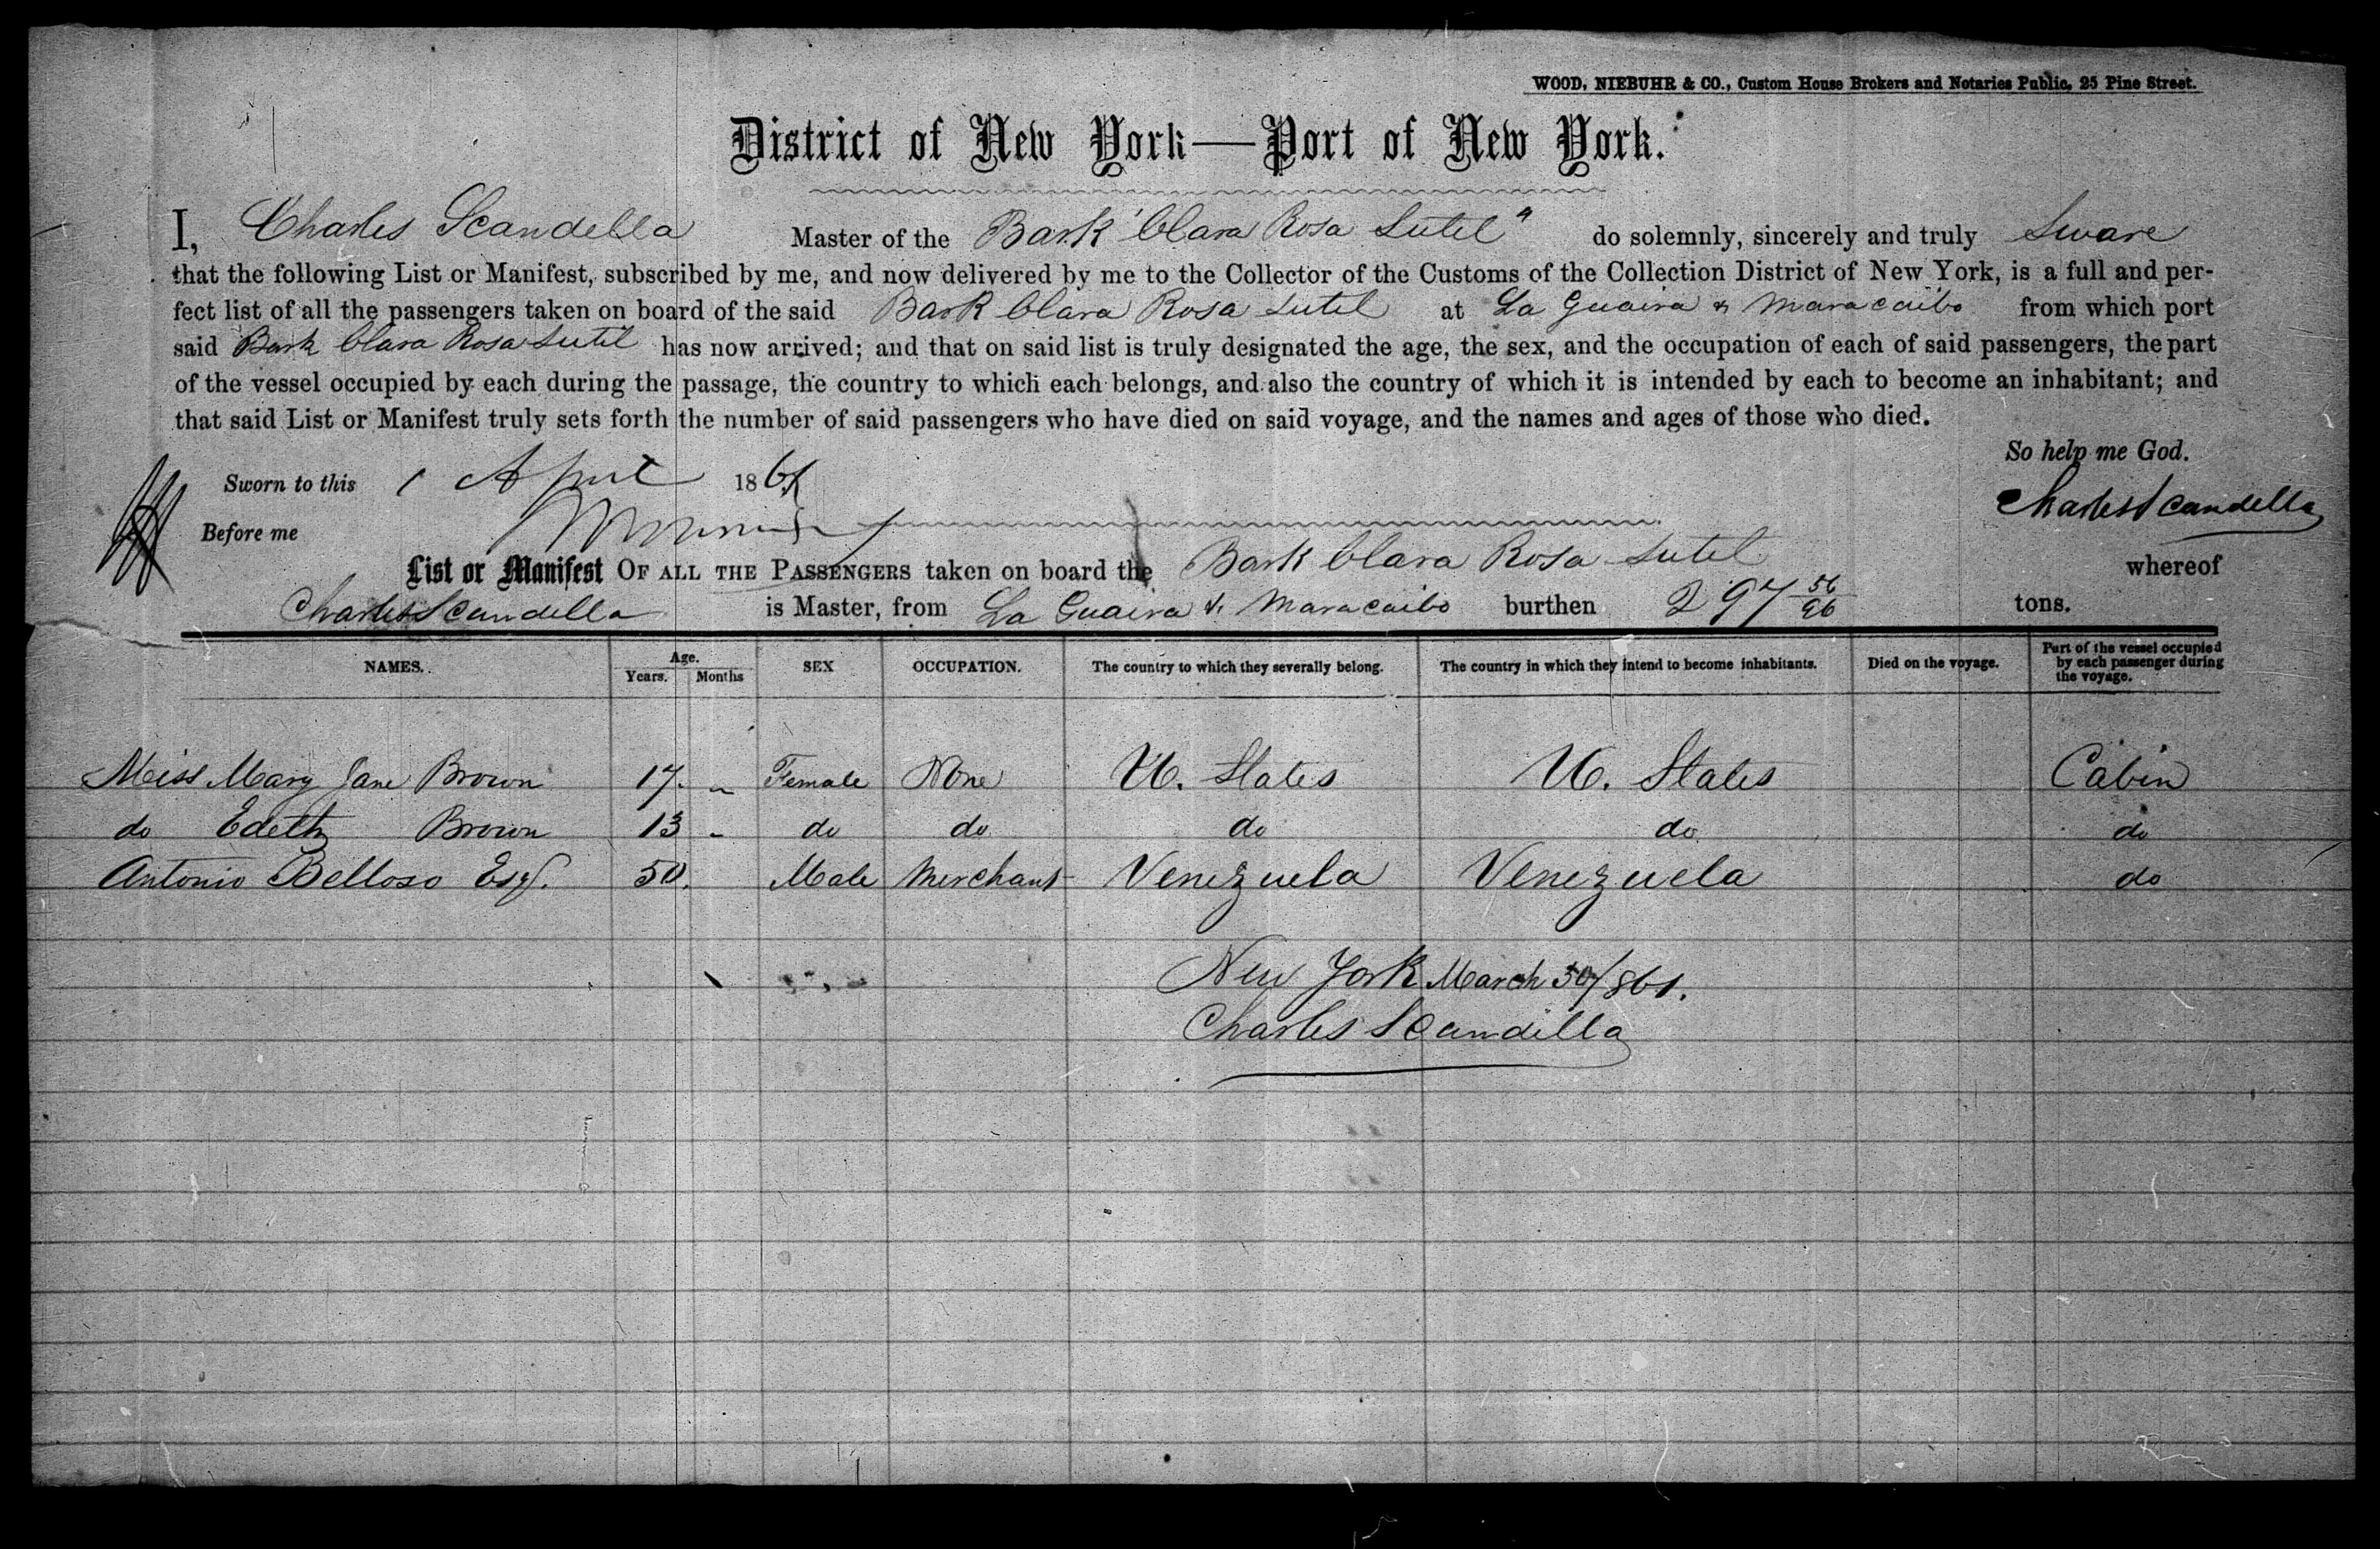 WOOD, NIEBUHR & CO., Custom House Brokers and Notaries Public, 25 Pine Street.
District of New York—Port of New York.
I, Charles Scandella Master of the Bark "Clara Rosa Sutil" do solemnly, sincerely and truly Sware
that the following List or Manifest, subscribed by me, and now delivered by me to the Collector of the Customs of the Collection District of New York, is a full and per-
fect list of all the passengers taken on board of the said Bark Clara Rosa Sutil at La Guaira & Maracaibo from which port
said Bark Clara Rosa Sutil has now arrived; and that on said list is truly designated the age, the sex, and the occupation of each of said passengers, the part
of the vessel occupied by each during the passage, the country to which each belongs, and also the country of which it is intended by each to become an inhabitant; and
that said List or Manifest truly sets forth the number of said passengers who have died on said voyage, and the names and ages of those who died.
So help me God.
Sworn to this 1 April 1861
Charles Scandella
Before me
List or Manifest OF ALL THE PASSENGERS taken on board the Bark Clara Rosa Sutil whereof
Charles Scandella is Master, from La Guaira & Maracaibo burthen 297 56/96 tons.
NAMES. Age. Years. Months SEX OCCUPATION. The country to which they severally belong. The country in which they intend to become inhabitants. Died on the voyage. Part of the vessel occupied by each passenger during the voyage.
Miss Mary Jane Brown 17. - Female None U. States U. States Cabin
do Edeth Brown 13 - do do do do do
Antonio Belloso Esq. 50. Male Merchant Venezuela Venezuela do
New York March 30/861.
Charles Scandella